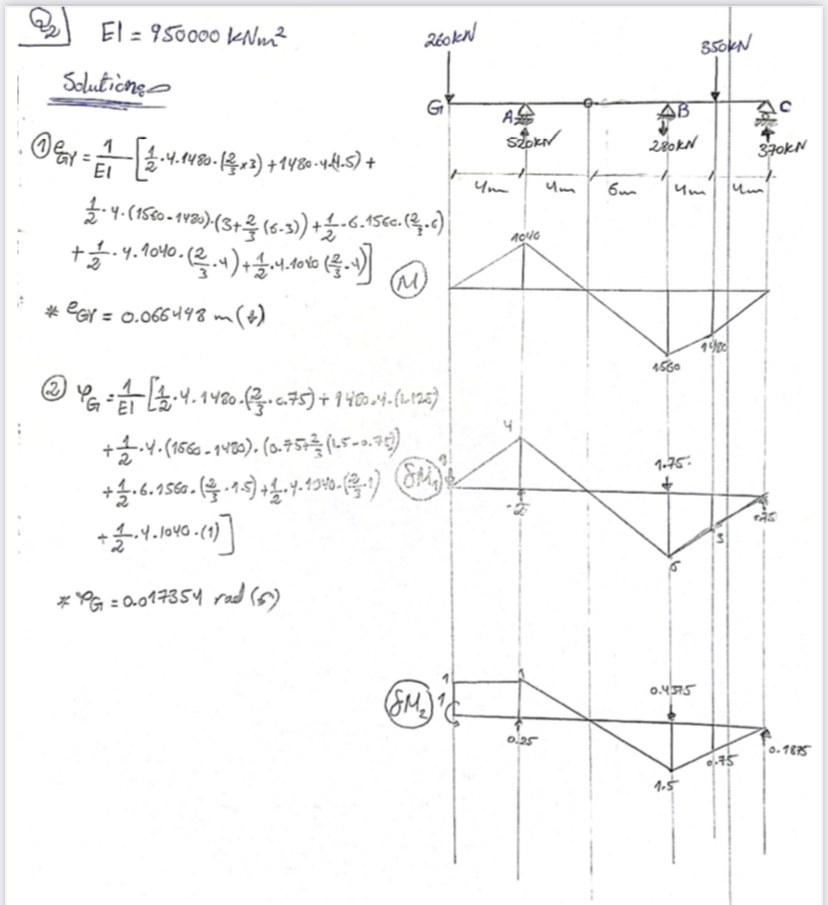 Q2 EI = 950000 kNm²
Solutions
① eGY = 1/EI [1/2·4·1480·(2/3×3)+1480·4·(4.5)+
1/2·4·(1560-1480)·(3+2/3(6-3))+1/2·6·1560·(2/3·6)
+1/2·4·1040·(2/3·4)+1/2·4·1040(2/3·4)]
* eGY = 0.066498 m (↓)
② φG = 1/EI [1/2·4·1480·(2/3·0.75)+1480·4·(1.125)
+1/2·4·(1560-1480)·(0.75+2/3(1.5-0.75))
+1/2·6·1560·(2/3·1.5)+1/2·4·1040·(2/3·1)
+1/2·4·1040·(1)]
* φG = 0.017354 rad
260kN 350kN
G A B C
520kN 280kN 370kN
4m 4m 6m 4m 4m
1040
M
1560 1480
4
1 δM1 1.75
2 0.75
6 3
1 1
δM2 1 0.4375
0.25 0.75 0.1875
1.5